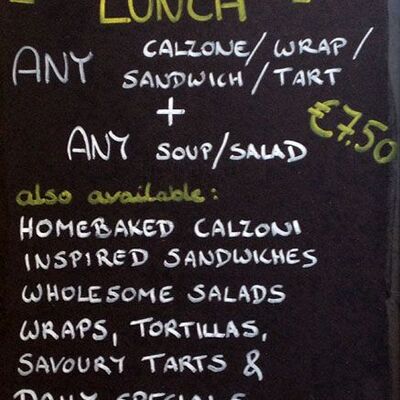 - LUNCH -
ANY CALZONE/ WRAP/
SANDWICH / TART
+
ANY SOUP/SALAD
€7,50
also available:
HOMEBAKED CALZONI
INSPIRED SANDWICHES
WHOLESOME SALADS
WRAPS, TORTILLAS,
SAVOURY TARTS &
DAILY SPECIALS